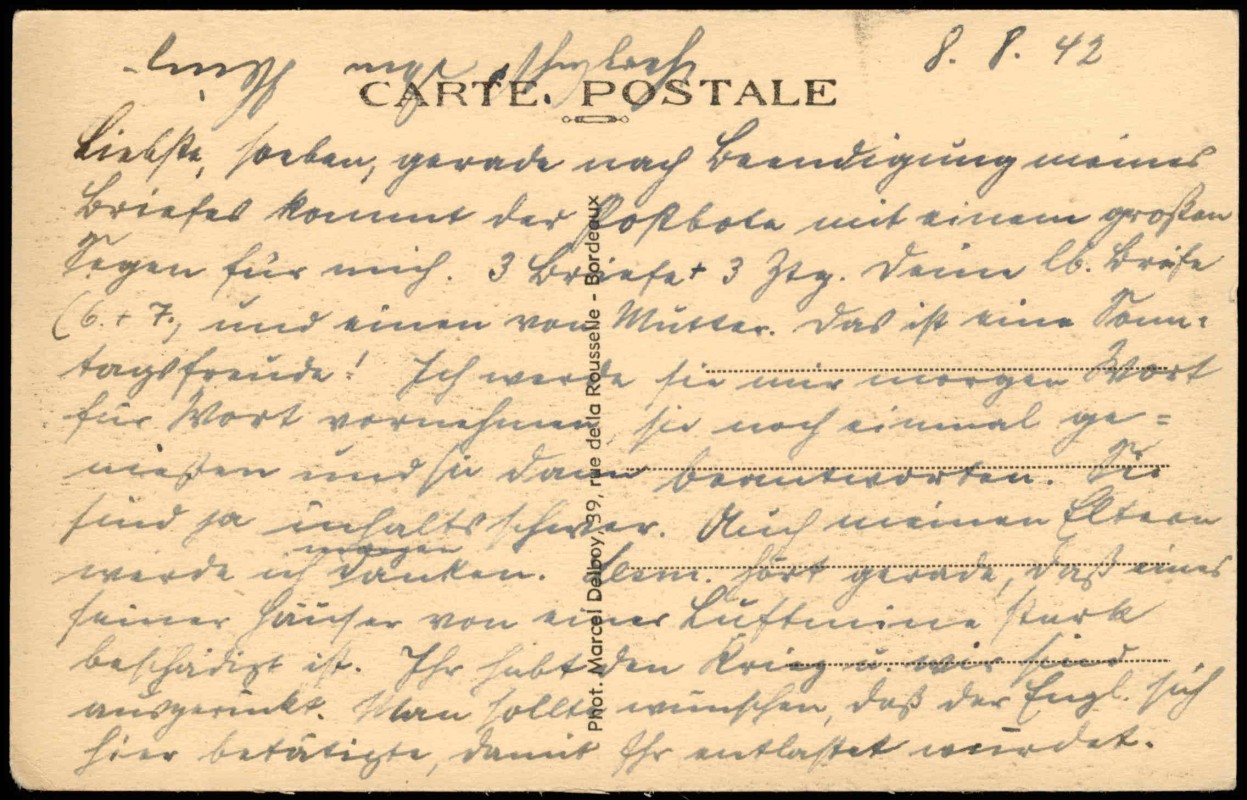 8. 8. 42
CARTE POSTALE
Liebste, soeben, gerade nach Beendigung meines
Briefes kommt der Postbote mit einem großen
Segen für mich. 3 Briefe + 3 Ztg. Deine lb. Briefe
(6. + 7., und einen von Mutter. Das ist eine Sonn-
tagsfreude! Ich werde sie mir morgen Wort
für Wort vornehmen, sie noch einmal ge=
nießen und sie dann beantworten. Sie
sind ja inhaltsschwer. Auch meinen Eltern
morgen
werde ich danken. hört gerade, daß eines
seiner Häuser von einer Luftmine stark
beschädigt ist. Ihr habt den Krieg u. wir sind
ausgerückt. Man sollte wünschen, daß der Engl. sich
hier betätigte, damit Ihr entlastet würdet.
Phot. Marcel Delboy, 39, rue de la Rousselle - Bordeaux